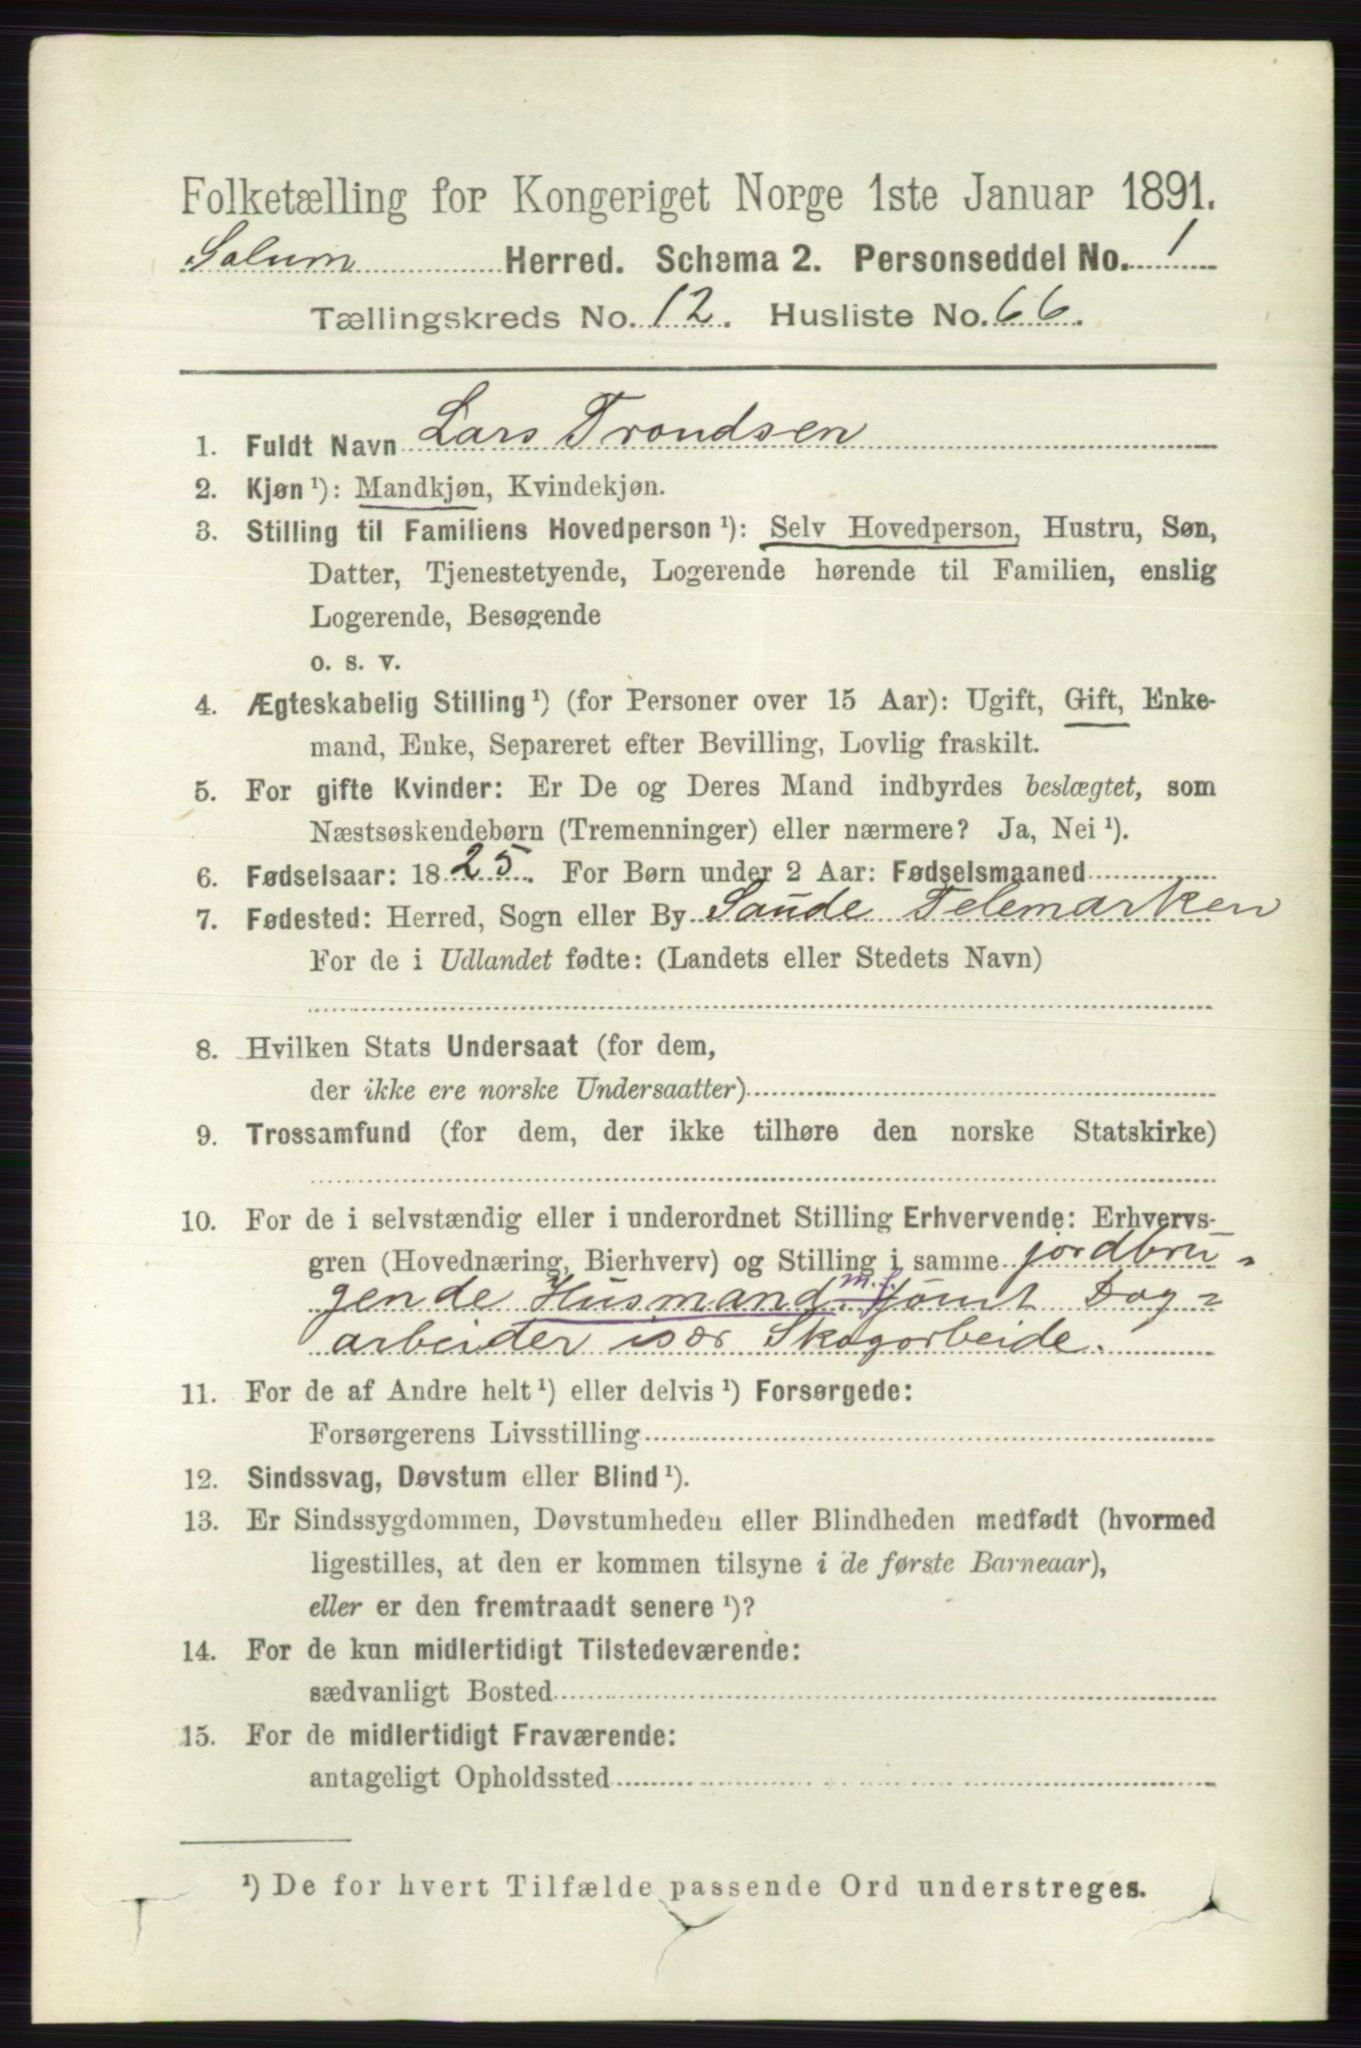 Folketælling for Kongeriget Norge 1ste Januar 1891.
Solum Herred. Schema 2. Personseddel No. 1
Tællingskreds No. 12. Husliste No. 66.
1. Fuldt Navn Lars Trondsen
2. Kjøn ¹): Mandkjøn, Kvindekjøn.
3. Stilling til Familiens Hovedperson ¹): Selv Hovedperson, Hustru, Søn,
Datter, Tjenestetyende, Logerende hørende til Familien, enslig
Logerende, Besøgende
o. s. v.
4. Ægteskabelig Stilling ¹) (for Personer over 15 Aar): Ugift, Gift, Enke-
mand, Enke, Separeret efter Bevilling, Lovlig fraskilt.
5. For gifte Kvinder: Er De og Deres Mand indbyrdes beslægtet, som
Næstsøskendebørn (Tremenninger) eller nærmere? Ja, Nei ¹).
6. Fødselsaar: 1825. For Børn under 2 Aar: Fødselsmaaned
7. Fødested: Herred, Sogn eller By Saude Telemarken
For de i Udlandet fødte: (Landets eller Stedets Navn)
8. Hvilken Stats Undersaat (for dem,
der ikke ere norske Undersaatter)
9. Trossamfund (for dem, der ikke tilhøre den norske Statskirke)
10. For de i selvstændig eller i underordnet Stilling Erhvervende: Erhvervs-
gren (Hovednæring, Bierhverv) og Stilling i samme jordbru-
gende Husmand m. j. samt Dag-
arbeider især Skogarbeide.
11. For de af Andre helt ¹) eller delvis ¹) Forsørgede:
Forsørgerens Livsstilling
12. Sindssvag, Døvstum eller Blind ¹).
13. Er Sindssygdommen, Døvstumheden eller Blindheden medfødt (hvormed
ligestilles, at den er kommen tilsyne i de første Barneaar),
eller er den fremtraadt senere ¹)?
14. For de kun midlertidigt Tilstedeværende:
sædvanligt Bosted
15. For de midlertidigt Fraværende:
antageligt Opholdssted
¹) De for hvert Tilfælde passende Ord understreges.